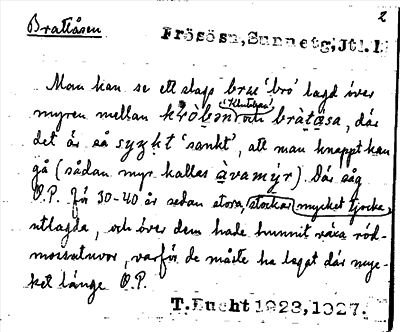 2
Brattåsen
Frösösn, Sunnetg; Jtl. l.
Man kan se ett slags brue 'bro' lagd över
'Klutaber'
myren mellan króbən och bràtå̀sa, där
det är så syzkt 'sankt', att man knappt kan
gå (sådan myr kallas àvamýr). Där såg
O.P. för 30-40 år sedan stora, stockar, mycket tjocka,
utlagda, och över dem hade hunnit växa röd-
mossatuvor, varför de måste ha legat där myc-
ket länge O.P.
T. Eucht 1928, 1927.